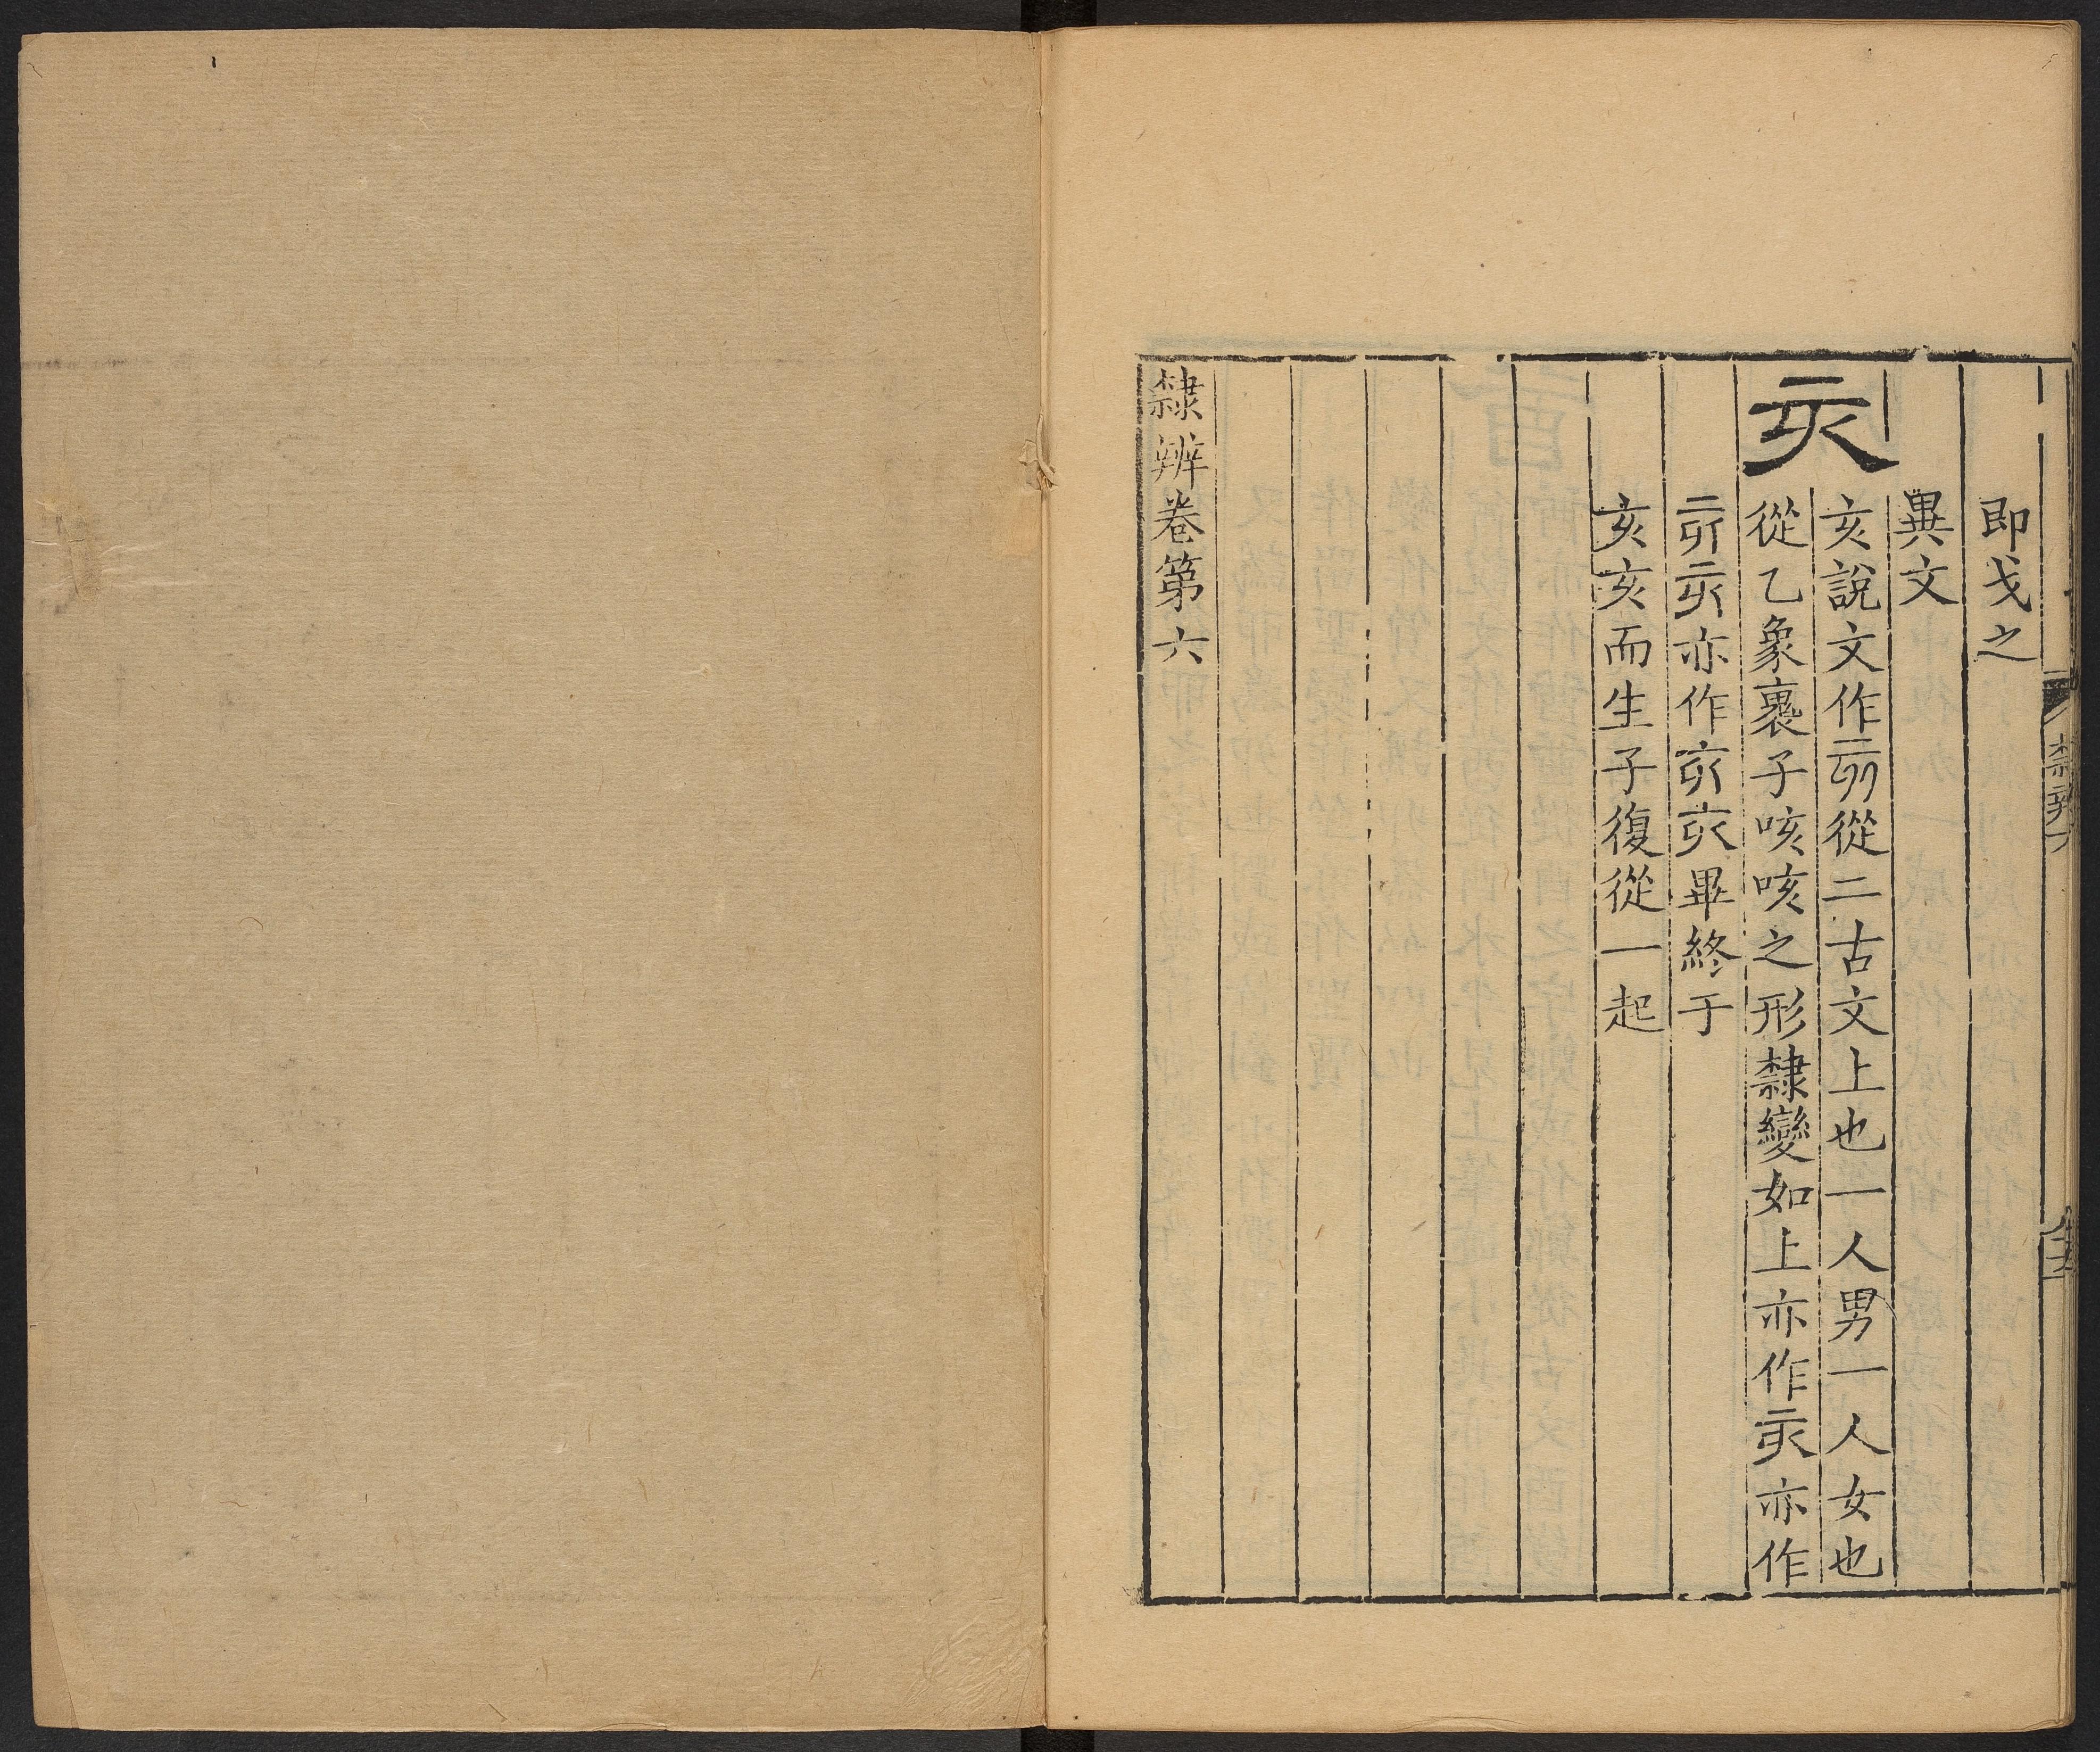 即戈之
異文
亥 亥說文作𠅆從二古文上也一人男一人女也
從乙象褢子咳咳之形隸變如上亦作亥亦作
亦作畢終于
亥亥而生子復從一起
隸辨卷第六
隸辨六